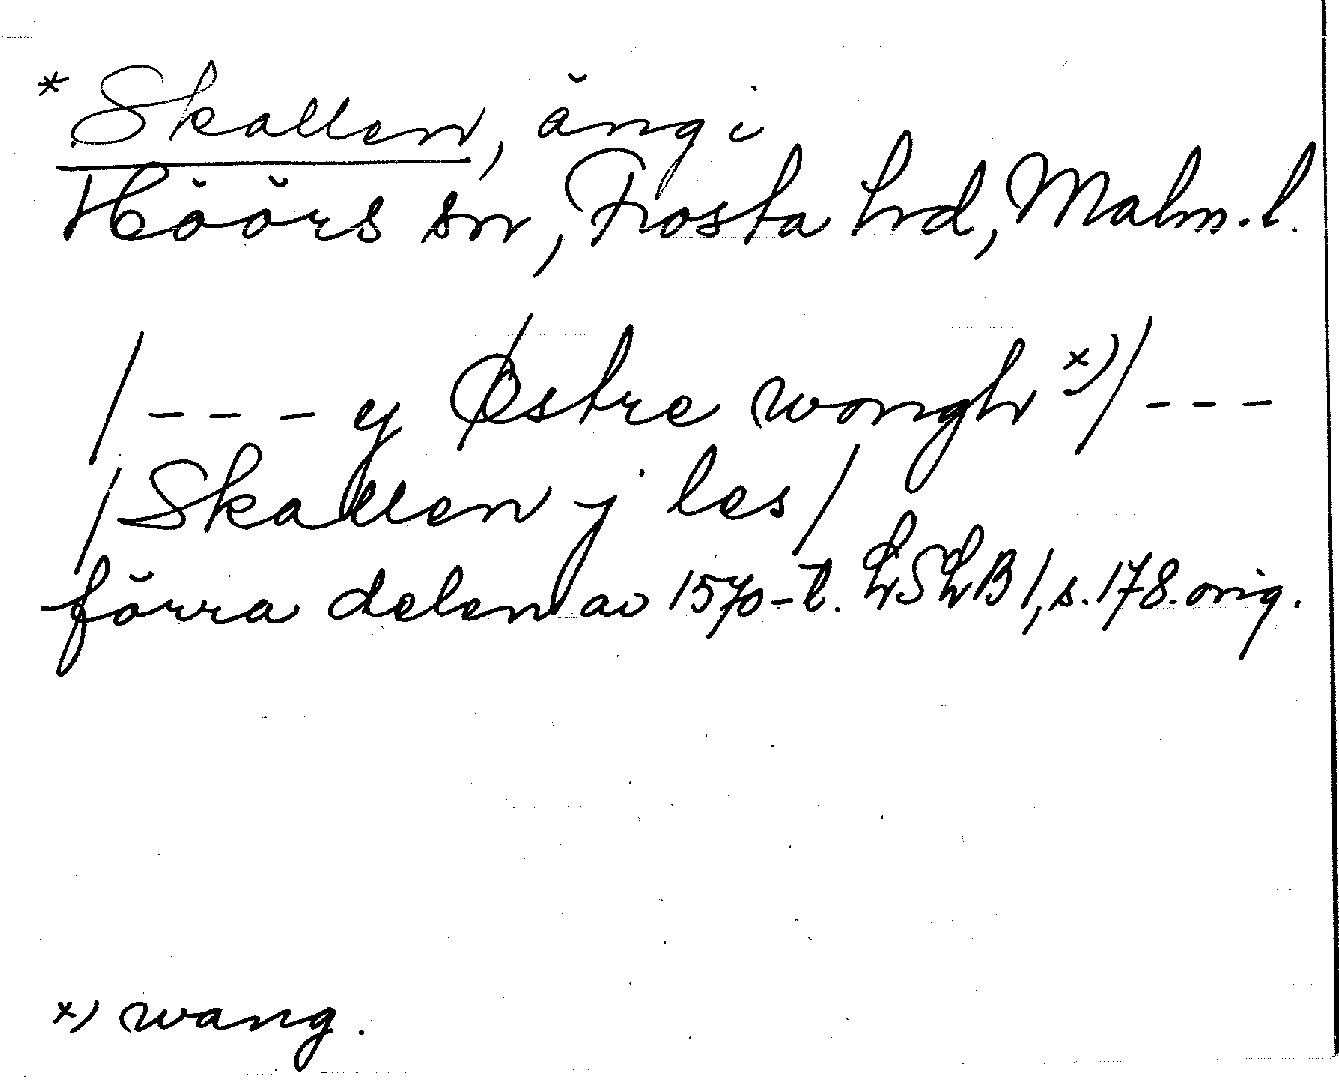 * Skallen, äng i
Höörs sn, Frosta hrd, Malm. l.
/--- y Østre wongh x)/ ---
/Skallen j les/
förra delen av 1570-t. LSLB 1, s. 178. orig.
x) wang.